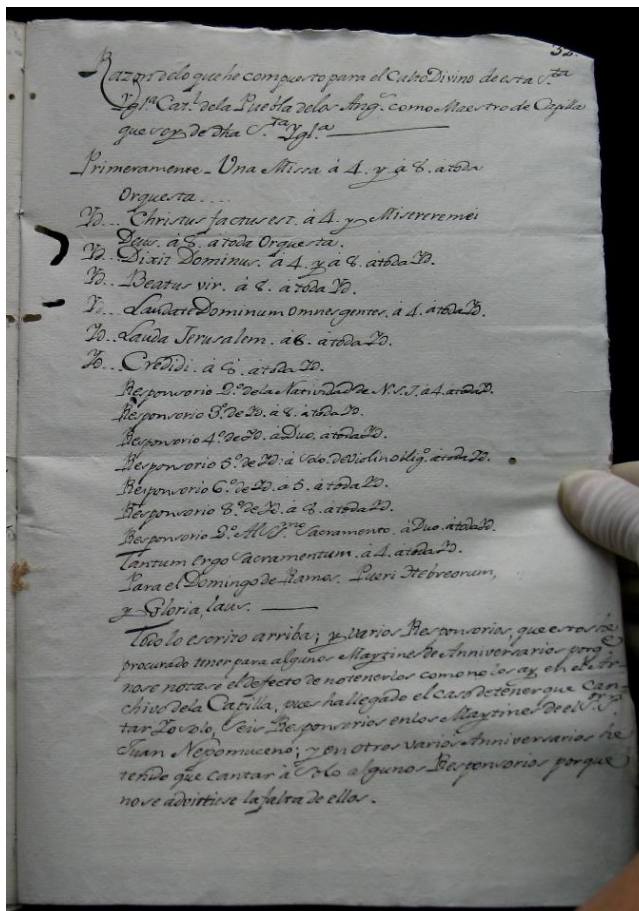 32.
Razon de lo que he compuesto para el Culto Divino de esta S.ta
Ygl.a Cat.l de la Puebla de los Ang.s como Maestro de Capilla
que soy de dha S.ta Ygl.a
Primeramente - Una Missa à 4. y à 8. à toda
Orquesta....
Yd... Christus factus est. à 4. y Miserere mei
Deus. à 8. a toda Orquesta.
Yd... Dixit Dominus. à 4. y à 8. à toda Yd.
Yd.. Beatus vir. à 8. à toda Yd.
Yd.. Laudate Dominum omnes gentes. à 4. à toda Yd.
Yd.. Lauda Jerusalem. à 8. à toda Yd.
Yd.. Credidi. à 8. à toda Yd.
Responsorio 2.o de la Natividad de N.S.J. à 4. à toda Yd.
Responsorio 3.o de Yd. à 8. à toda Yd.
Responsorio 4.o de Yd. à Duo. à toda Yd.
Responsorio 5.o de Yd. à Solo. de Violin oblig.o à toda Yd.
Responsorio 6.o de Yd. à 5. à toda Yd.
Responsorio 8.o de Yd. à 8. à toda Yd.
Responsorio 2.o Al SS.mo Sacramento. à Duo. à toda Yd.
Tantum ergo Sacramentum. à 4. à toda Yd.
Para el Domingo de Ramos. Pueri Hebreorum,
y Gloria, laus.
Todo lo escrito arriba; y varios Responsorios, que estos he
procurado tener para algunos Maytines de Anniversarios porq.e
no se notase el defecto de no tenerlos como no los ay en el Ar-
chivo de la Capilla, pues ha llegado el caso de tener que can-
tar Yo solo, Seis Responsorios en los Maytines de el S.r S.n
Juan Nepomuceno; y en otros varios Anniversarios he
tenido que cantar à Solo algunos Responsorios porque
no se advirtiese la falta de ellos.